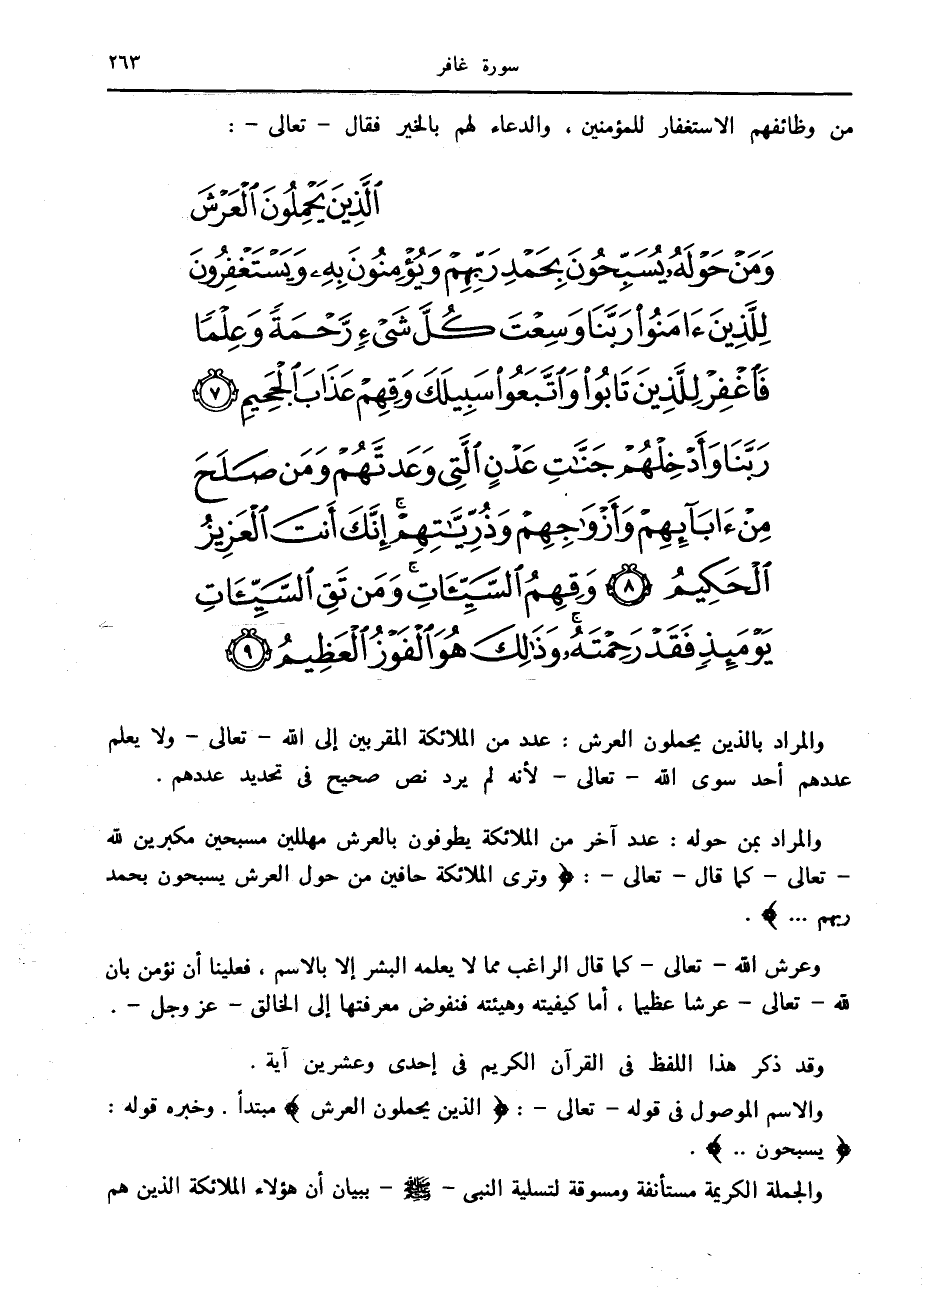 سورة غافر
٢٦٣
من وظائفهم الاستغفار للمؤمنين ، والدعاء لهم بالخير فقال – تعالى – :
ٱلَّذِينَ يَحۡمِلُونَ ٱلۡعَرۡشَ
وَمَنۡ حَوۡلَهُۥ يُسَبِّحُونَ بِحَمۡدِ رَبِّهِمۡ وَيُؤۡمِنُونَ بِهِۦ وَيَسۡتَغۡفِرُونَ
لِلَّذِينَ ءَامَنُواْ رَبَّنَا وَسِعۡتَ كُلَّ شَيۡءٖ رَّحۡمَةٗ وَعِلۡمٗا
فَٱغۡفِرۡ لِلَّذِينَ تَابُواْ وَٱتَّبَعُواْ سَبِيلَكَ وَقِهِمۡ عَذَابَ ٱلۡجَحِيمِ ٧
رَبَّنَا وَأَدۡخِلۡهُمۡ جَنَّٰتِ عَدۡنٍ ٱلَّتِي وَعَدتَّهُمۡ وَمَن صَلَحَ
مِنۡ ءَابَآئِهِمۡ وَأَزۡوَٰجِهِمۡ وَذُرِّيَّٰتِهِمۡۚ إِنَّكَ أَنتَ ٱلۡعَزِيزُ
ٱلۡحَكِيمُ ٨ وَقِهِمُ ٱلسَّيِّـَٔاتِۚ وَمَن تَقِ ٱلسَّيِّـَٔاتِ
يَوۡمَئِذٖ فَقَدۡ رَحِمۡتَهُۥۚ وَذَٰلِكَ هُوَ ٱلۡفَوۡزُ ٱلۡعَظِيمُ ٩
والمراد بالذين يحملون العرش : عدد من الملائكة المقربين إلى الله – تعالى – ولا يعلم
عددهم أحد سوى الله – تعالى – لأنه لم يرد نص صحيح فى تحديد عددهم .
والمراد بمن حوله : عدد آخر من الملائكة يطوفون بالعرش مهللين مسبحين مكبرين لله
– تعالى – كما قال – تعالى – : ﴿ وترى الملائكة حافين من حول العرش يسبحون بحمد
ربهم ... ﴾ .
وعرش الله – تعالى – كما قال الراغب مما لا يعلمه البشر إلا بالاسم ، فعلينا أن نؤمن بان
لله – تعالى – عرشا عظيما ، أما كيفيته وهيئته فنفوض معرفتها إلى الخالق – عز وجل – .
وقد ذكر هذا اللفظ فى القرآن الكريم فى إحدى وعشرين آية .
والاسم الموصول فى قوله – تعالى – : ﴿ الذين يحملون العرش ﴾ مبتدأ . وخبره قوله :
﴿ يسبحون .. ﴾ .
والجملة الكريمة مستأنفة ومسوقة لتسلية النبى – ﷺ – ببيان أن هؤلاء الملائكة الذين هم